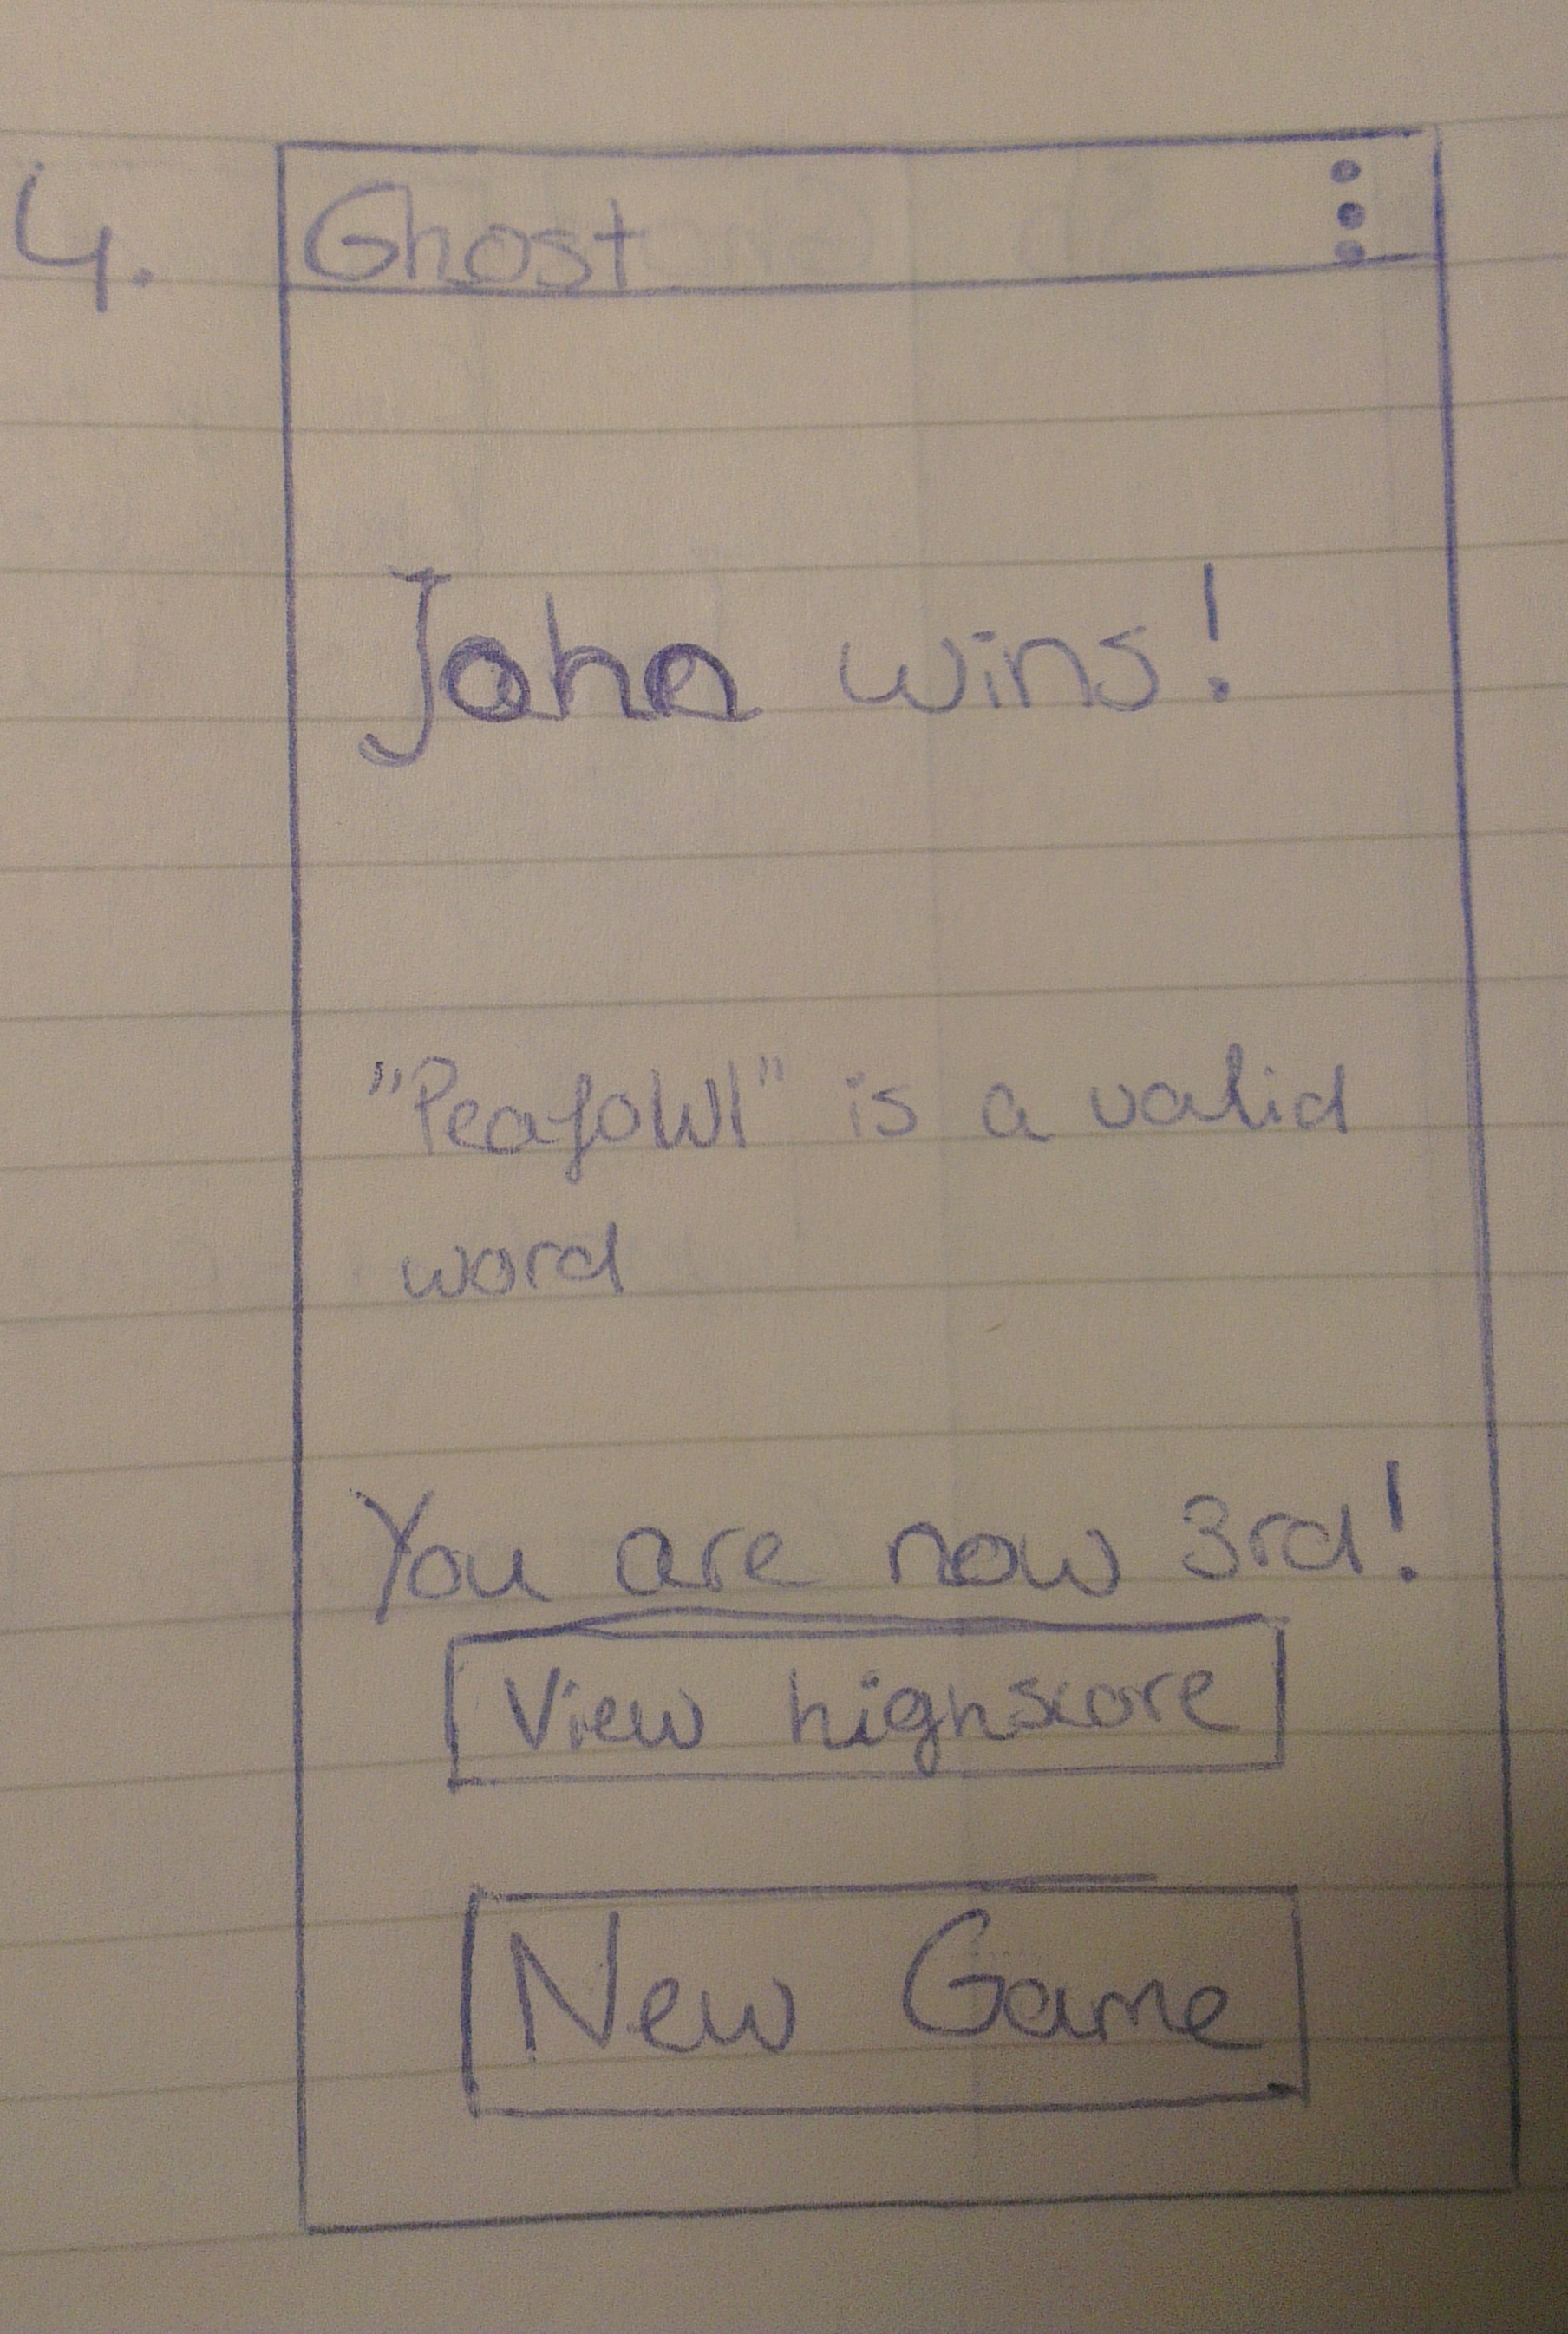 4.
Ghost
John wins!
"Peafowl" is a valid
word
You are now 3rd!
View highscore
New Game